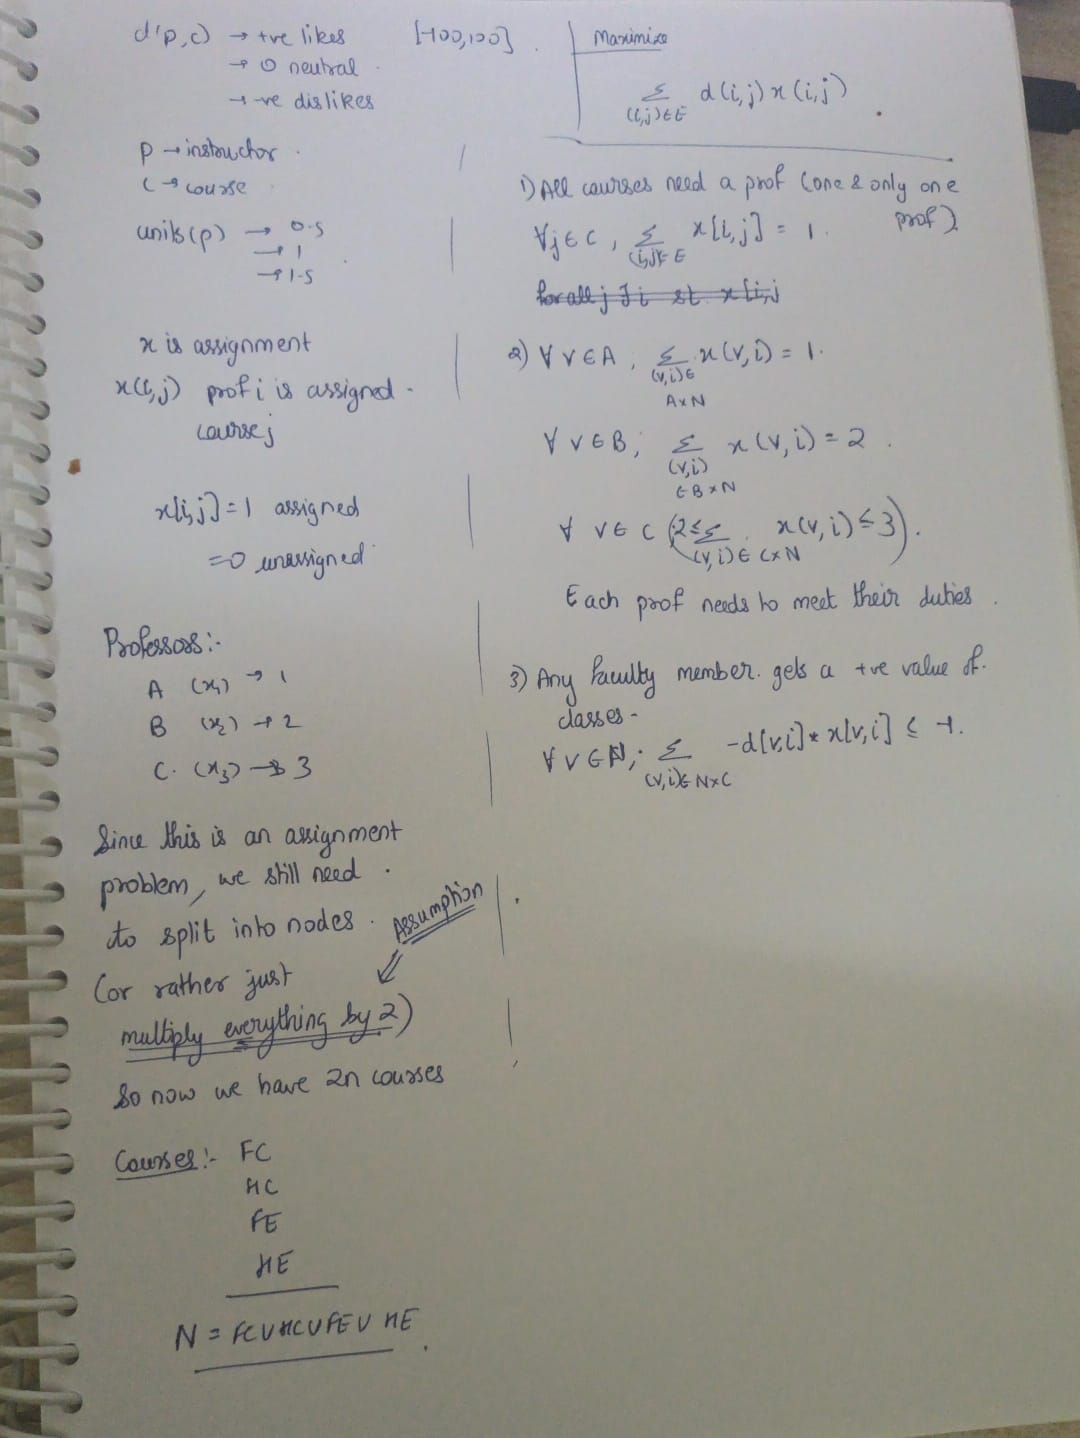 d(p,c) → +ve likes [-100,100].
→ 0 neutral.
→ -ve dislikes
p → instructor.
c → course
units(p) → 0.5
→ 1
→ 1.5
x is assignment
x(i,j) prof i is assigned
course j
x[i,j] = 1 assigned
= 0 unassigned
Professors:-
A (x₁) → 1
B (x₂) → 2
C. (x₃) → 3
Since this is an assignment
problem, we still need
to split into nodes.
(or rather just
multiply everything by 2)
Assumption
So now we have 2n courses
Courses:- FC
HC
FE
HE
N = FC ∪ HC ∪ FE ∪ HE.
Maximize
Σ d(i,j) x(i,j)
(i,j)∈E
1) All courses need a prof (one & only one
prof)
∀j∈C, Σ x[i,j] = 1.
(i,j)∈E
for all j ∃ i st x[i,j
2) ∀ v∈A, Σ x(v,i) = 1.
(v,i)∈
A×N
∀ v∈B, Σ x(v,i) = 2.
(v,i)
∈ B×N
∀ v∈C (2 ≤ Σ x(v,i) ≤ 3).
(v,i)∈ C×N
Each prof needs to meet their duties.
3) Any faculty member gets a +ve value of
classes-
∀ v∈ ; Σ -d[v,i] * x[v,i] ≤ -1.
(v,i)∈ N×C